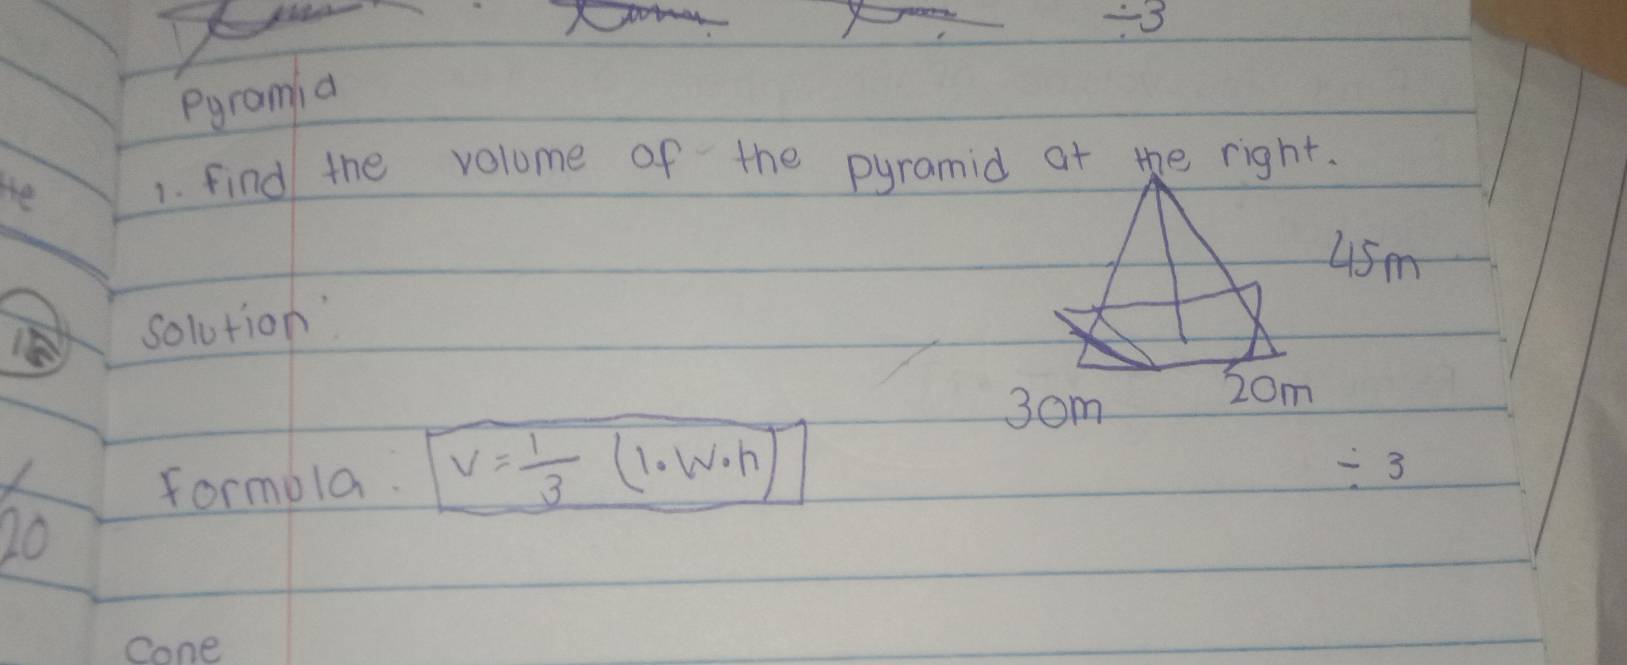 ÷3
Pyramid
1. Find the volume of the pyramid at the right.
45m
Solution:
30m
20m
Formula: V = 1/3 (l•W•h)
÷ 3
20
Cone